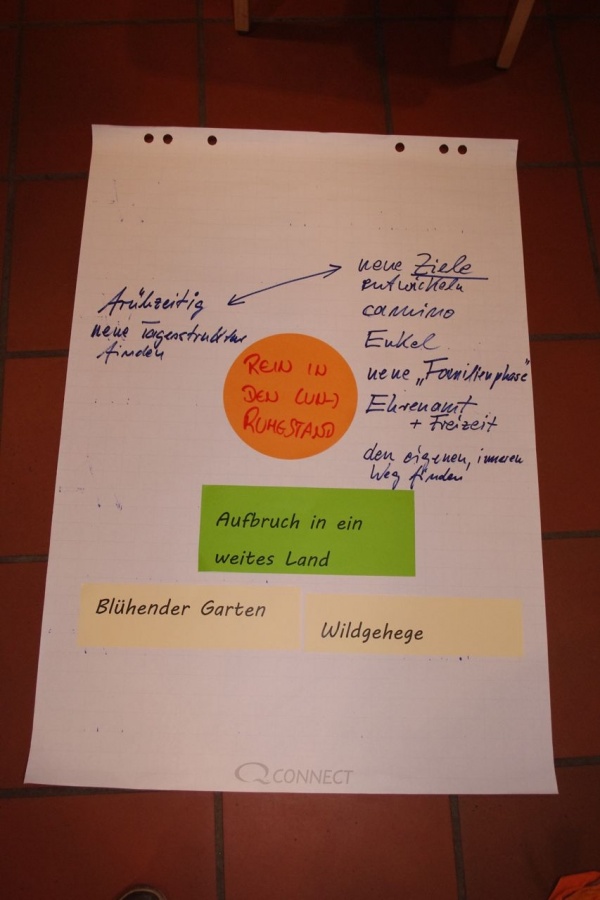 frühzeitig
neue Tagesstruktur
finden
neue Ziele
entwickeln
camino
Enkel
neue „Familienphase"
Ehrenamt
+ Freizeit
den eigenen, inneren
Weg finden
REIN IN
DEN (UN-)
RUHESTAND
Aufbruch in ein
weites Land
Blühender Garten
Wildgehege
Q CONNECT